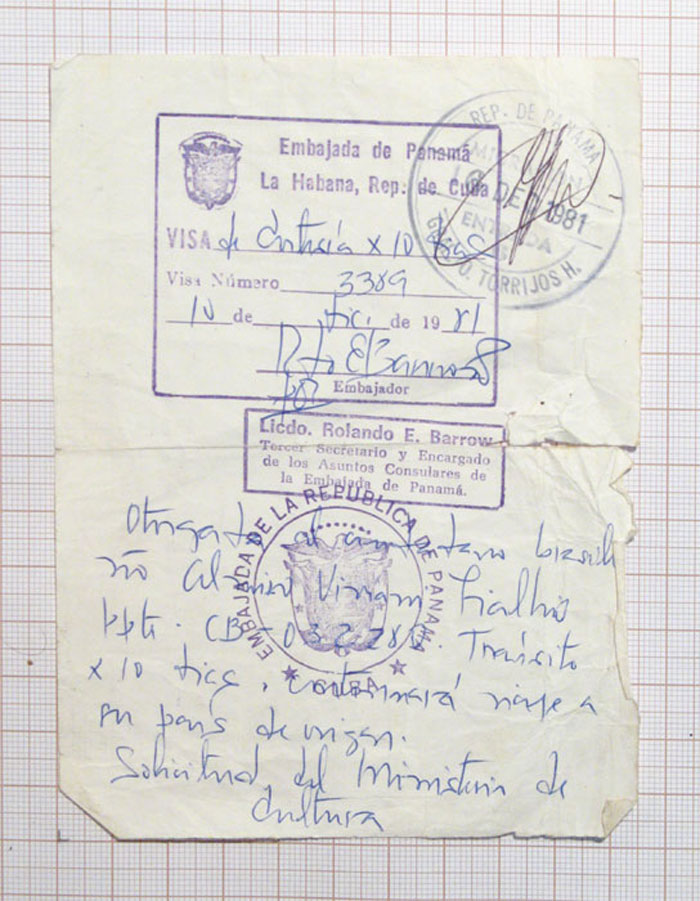 Embajada de Panamá
La Habana, Rep. de Cuba
VISA de x 10 días
Visa Número 3389
10 de dic. de 1981
por Embajador
REP. DE PANAMA
1981
ENTRADA
TORRIJOS H.
Licdo. Rolando E. Barrow
Tercer Secretario y Encargado
de los Asuntos Consulares de
la Embajada de Panamá.
EMBAJADA DE LA REPUBLICA DE PANAMA
CUBA
Otorgada al ciudadano brasile
ño Vivian Fialho
Ppte. CB-032280. Tránsito
x 10 días, continuará viaje a
su país de origen.
Solicitud del Ministerio de
Cultura